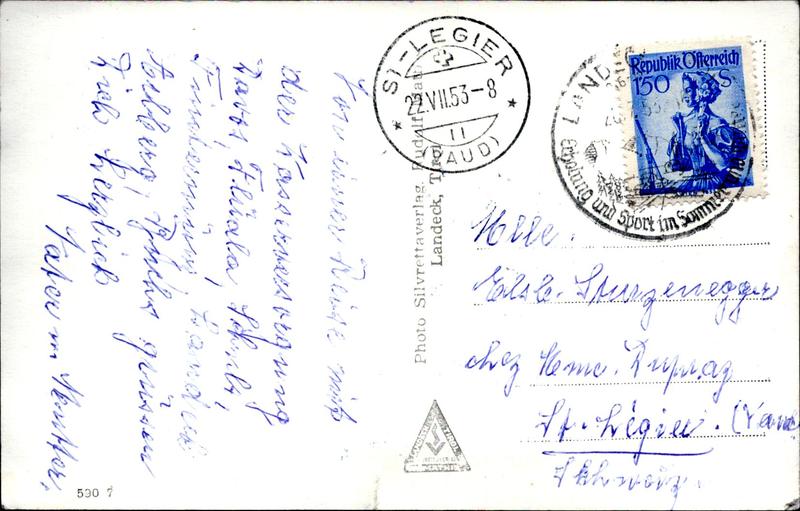 Von einer Reise mit
der Wasserversorgung
Davos, Flüela, Schuls,
Finstermünz, Landeck
Arlberg, grüssen
Dich herzlich
Vater u Mutter.
530 7
Photo Silvrettaverlag, Rudolf
Landeck, Tirol
ST-LEGIER
22.VII.53-8
11
(VAUD)
LANDECK
Erholung und Sport im Sommer und
Republik Österreich
1'50 S
Mlle.
Elsb. Sturzenegger
chez Mme. Dupraz
St. Légier. (Vaud)
Schweiz.